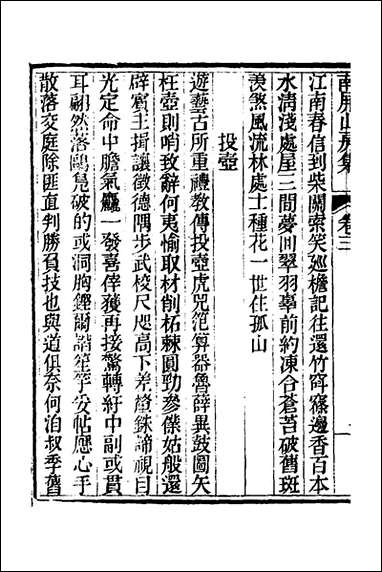 南屏山房集 卷三
江南春信到柴關索笑巡檐記往還竹管寮邊香百本
水清淺處屋三間夢回翠羽搴前約凍合蒼苔破舊斑
羨煞風流林處士種花一世住孤山
投壺
遊藝古所重禮教傳投壺虎兕笵算器魯薛異鼓圖矢
枉壺則哨致辭何夷愉取材削柘棘圓勁參僕姑般還
辟賓主揖讓徵德隅步武校尺咫高下差螯銖諦視目
光定命中膽氣麤一發喜倖獲再接驚轉紆中副或貫
耳翩然落鷗鳧破的或洞胸鏗爾諧笙竽妥帖應心手
散落交庭除匪直判勝負技也與道俱奈何泊叔季舊